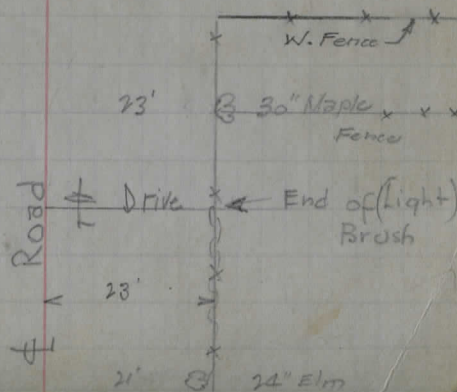 W. Fence
23' 30" Maple
Fence
Road
Drive
End of (Light)
Brush
23'
21' 24" Elm